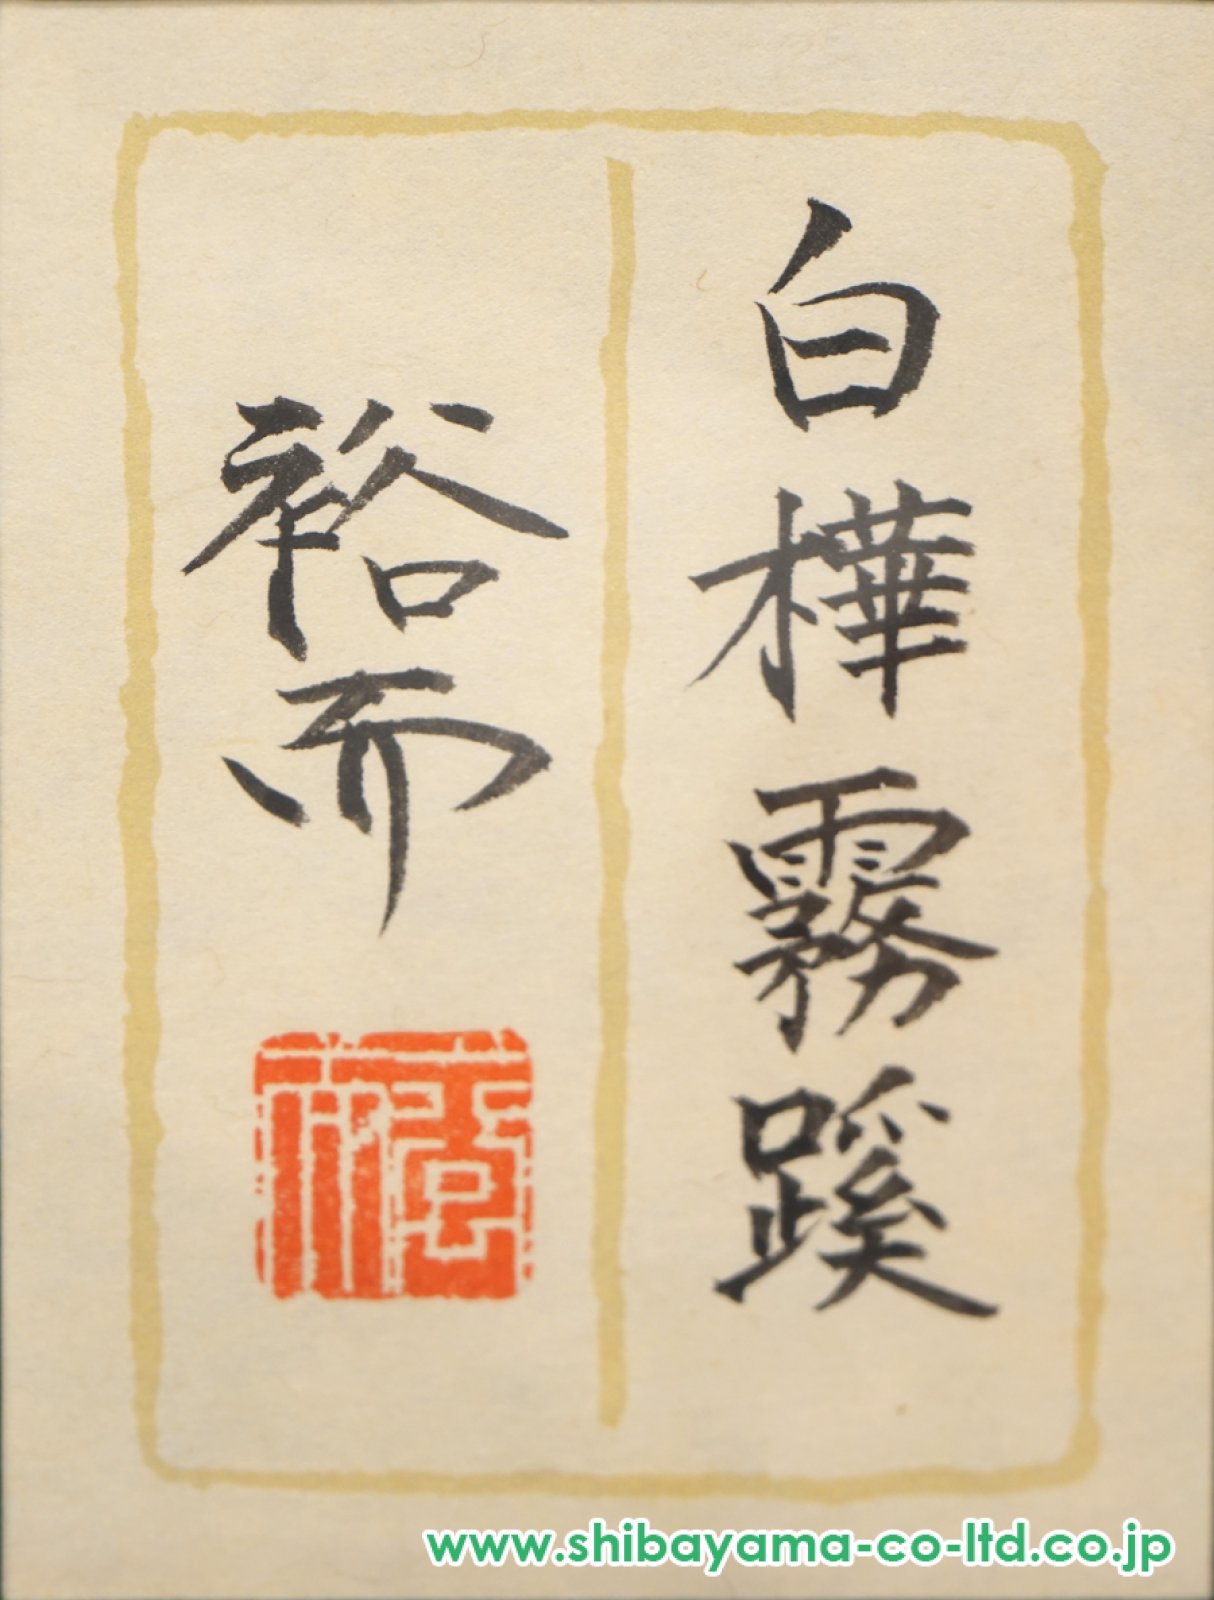 白樺霧蹊
裕而
裕
www.shibayama-co-ltd.co.jp